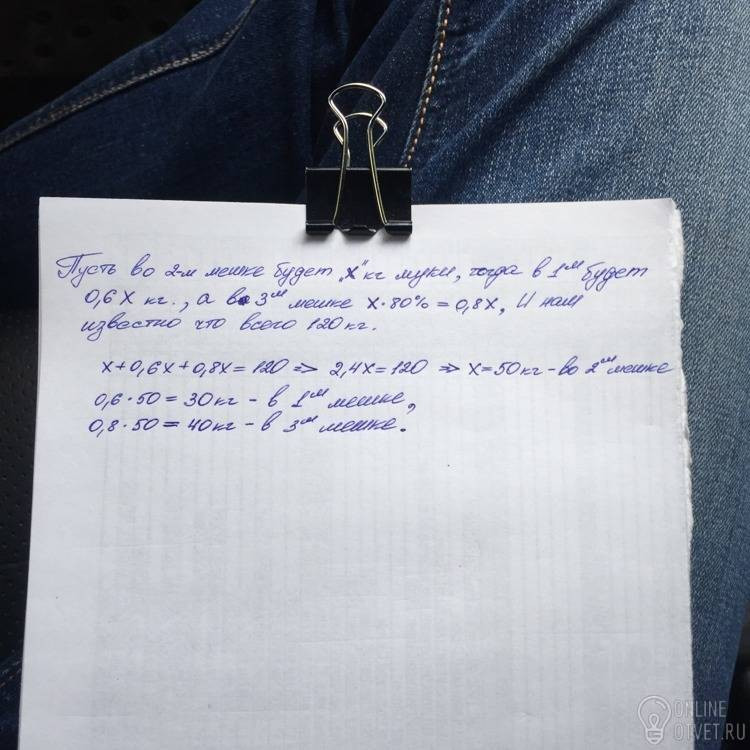 Пусть во 2-м мешке будет „x" кг муки, тогда в 1м будет
0,6x кг., а во 3м мешке x·80% = 0,8x, И нам
известно что всего 120 кг.
x+0,6x+0,8x=120 => 2,4x=120 => x=50кг - во 2м мешке
0,6·50=30кг - в 1м мешке,
0,8·50=40кг - в 3м мешке.
ONLINE
OTVET.RU